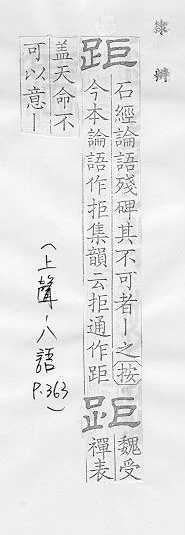 隸辨
距
石經論語殘碑其不可者丨之按
今本論語作拒集韻云拒通作距
距
魏受
禪表
蓋天命不
可以意丨
(上聲、八語 P.363)